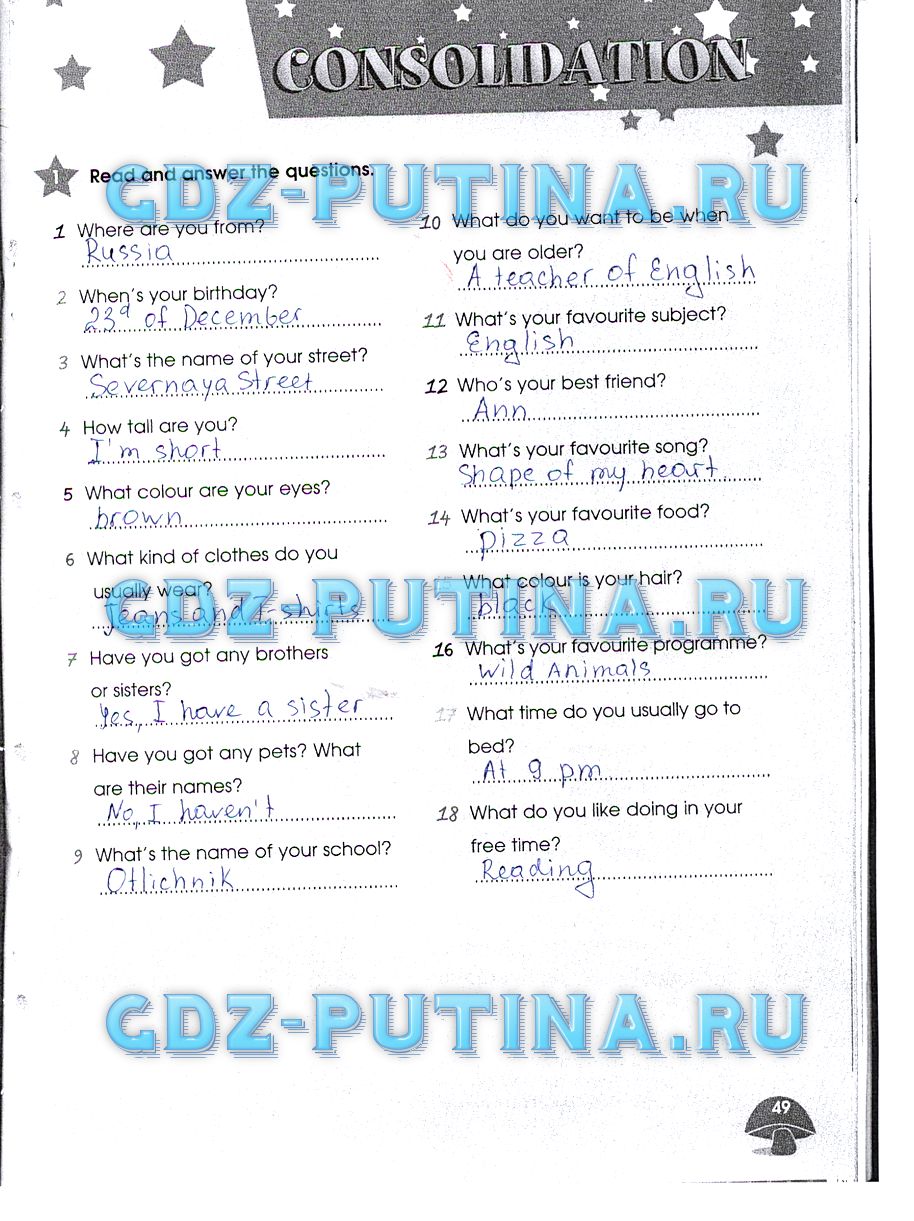 CONSOLIDATION
1 Read and answer the questions.
GDZ-PUTINA.RU
1 Where are you from?
Russia
2 When's your birthday?
23d of December
3 What's the name of your street?
Severnaya Street
4 How tall are you?
I'm short
5 What colour are your eyes?
brown
6 What kind of clothes do you
usually wear?
Jeans and T-shirts
7 Have you got any brothers
or sisters?
Yes, I have a sister
8 Have you got any pets? What
are their names?
No, I haven't
9 What's the name of your school?
Otlichnik
10 What do you want to be when
you are older?
A teacher of English
11 What's your favourite subject?
English
12 Who's your best friend?
Ann
13 What's your favourite song?
Shape of my heart
14 What's your favourite food?
pizza
15 What colour is your hair?
black
GDZ-PUTINA.RU
16 What's your favourite programme?
Wild Animals
17 What time do you usually go to
bed?
At 9 pm
18 What do you like doing in your
free time?
Reading
GDZ-PUTINA.RU
49